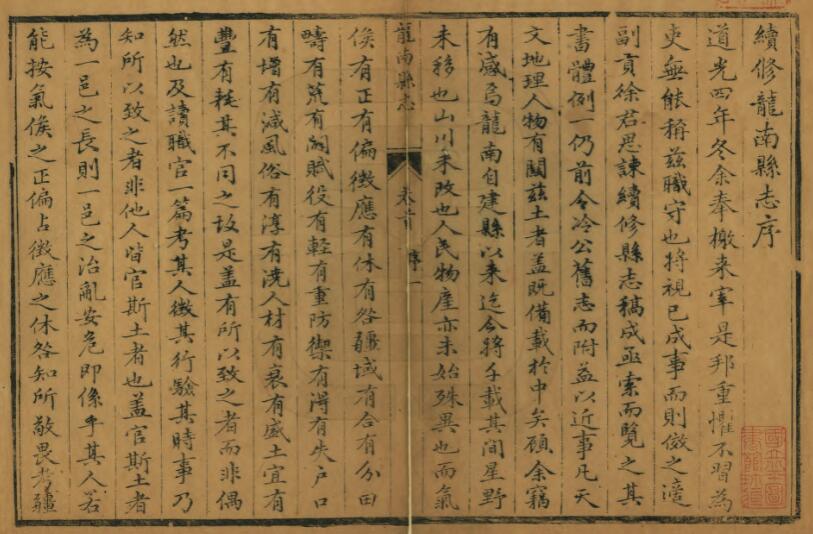 續修龍南縣志序
道光四年冬余奉檄来宰是邦重懼不習為
吏無能稱茲職守也將視已成事而則傚之適
副貢徐君思諫續修縣志稿成亟索而覽之其
書體例一仍前令冷公舊志而附益以近事凡天
文地理人物有關茲土者盖既備載於中矣顧余竊
有感焉龍南自建縣以来迄今將千載其間星野
未移也山川未改也人民物產亦未始殊異也而氣
龍南縣志
卷首
序
一
候有正有偏徵應有休有咎疆域有合有分田
疇有荒有闢賦役有輕有重防禦有得有失户口
有增有減風俗有淳有澆人材有衰有盛土宜有
豐有耗其不同之故是盖有所以致之者而非偶
然也及讀職官一篇考其人徵其行驗其時事乃
知所以致之者非他人皆官斯土者也盖官斯土者
為一邑之長則一邑之治亂安危即係乎其人若
能按氣候之正偏占徵應之休咎知所敬畏考疆